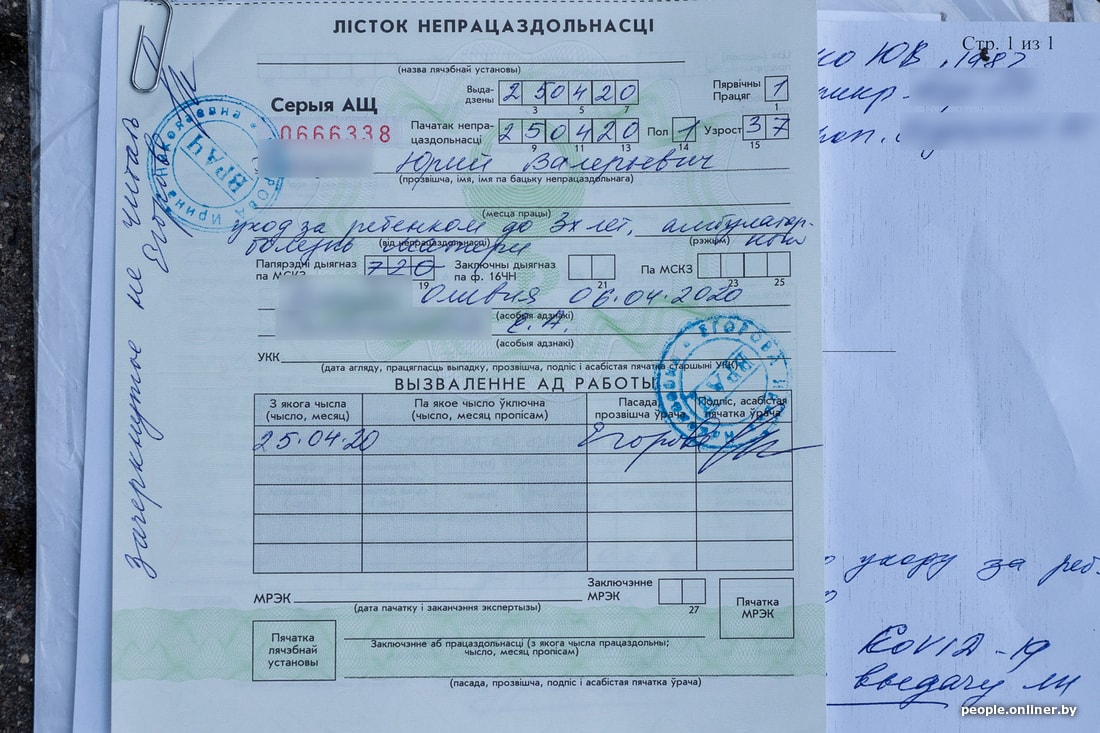 ЛІСТОК НЕПРАЦАЗДОЛЬНАСЦІ
(назва лячэбнай установы)
Серыя АЩ
0666338
Выда-
дзены 250420
3 5 7
Першічны
Працяг 1
1
Пачатак непра-
цаздольнасці 250420
9 11 13
Пол 1
14
Узрост 37
15
Юрий Валерьевич
(прозвішча, імя, імя па бацьку непрацаздольнага)
(месца працы)
уход за ребенком до 3х лет, амбулатор-
болезнь матери
(від непрацаздольнасці) (рэжым)
Папярэдні дыягназ
па МСКЗ 720
19
Заключны дыягназ
па ф. 16ЧН
21
Па МСКЗ
23 25
Оливия 06.04.2020
(асобыя адзнакі)
с.А.
(асобыя адзнакі)
УКК
(дата агляду, працягласць выпадку, прозвішча, подпіс і асабістая пячатка старшыні УКК)
ВЫЗВАЛЕННЕ АД РАБОТЫ
З якога чысла
(чысло, месяц)
Па якое чысло ўключна
(чысло, месяц пропісам)
Пасада,
прозвішча ўрача
Подпіс, асабістая
пячатка ўрача
25.04.20 Егорова
МРЭК
(дата пачатку і заканчэння экспертызы)
Заключэнне
МРЭК
27
Пячатка
МРЭК
Пячатка
лячэбнай
установы
Заключэнне аб працаздольнасці (з якога чысла працаздольны;
чысло, месяц пропісам)
(пасада, прозвішча, подпіс і асабістая пячатка ўрача)
зачеркнутое не читать
Егорова
ЕГОРОВА
ВРАЧ
Ирина
ВРАЧ
Стр. 1 из 1
ко ЮВ, 1982
уходу за реб
COVID-19
выдачу ли
people.onliner.by